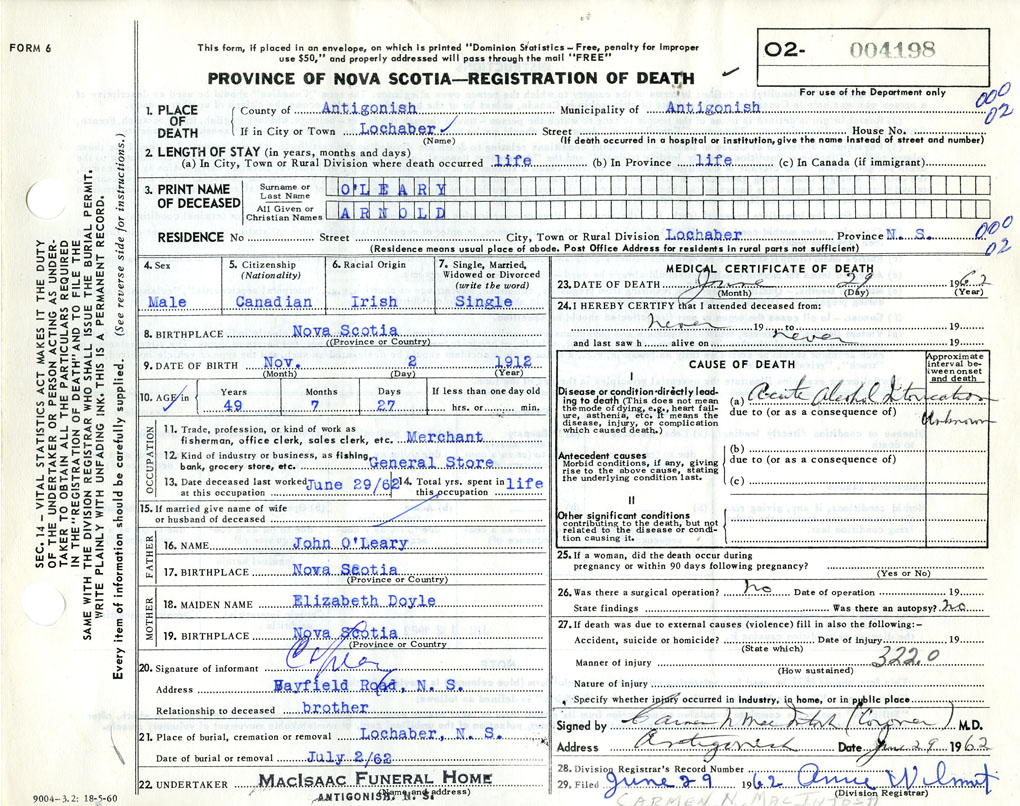 FORM 6
This form, if placed in an envelope, on which is printed "Dominion Statistics – Free, penalty for improper
use $50," and properly addressed will pass through the mail "FREE"
PROVINCE OF NOVA SCOTIA—REGISTRATION OF DEATH
O2- 004198
For use of the Department only
000
02
1. PLACE OF DEATH
County of Antigonish Municipality of Antigonish
If in City or Town Lochaber Street House No.
(Name) (If death occurred in a hospital or institution, give the name instead of street and number)
2. LENGTH OF STAY (in years, months and days)
(a) In City, Town or Rural Division where death occurred life (b) In Province life (c) In Canada (if immigrant)
3. PRINT NAME OF DECEASED
Surname or Last Name O'LEARY
All Given or Christian Names ARNOLD
RESIDENCE No Street City, Town or Rural Division Lochaber Province N. S.
000
02
(Residence means usual place of abode. Post Office Address for residents in rural parts not sufficient)
4. Sex
Male
5. Citizenship (Nationality)
Canadian
6. Racial Origin
Irish
7. Single, Married, Widowed or Divorced (write the word)
Single
8. BIRTHPLACE Nova Scotia
((Province or Country)
9. DATE OF BIRTH Nov. 2 1912
(Month) (Day) (Year)
10. AGE in
Years Months Days If less than one day old
49 7 27 hrs. or min.
OCCUPATION
11. Trade, profession, or kind of work as
fisherman, office clerk, sales clerk, etc. Merchant
12. Kind of industry or business, as fishing,
bank, grocery store, etc. General Store
13. Date deceased last worked at this occupation June 29/62
14. Total yrs. spent in this occupation life
15. If married give name of wife
or husband of deceased
FATHER
16. NAME John O'Leary
17. BIRTHPLACE Nova Scotia
(Province or Country)
MOTHER
18. MAIDEN NAME Elizabeth Doyle
19. BIRTHPLACE Nova Scotia
(Province or Country)
20. Signature of informant
Address Hayfield Road, N. S.
Relationship to deceased brother
21. Place of burial, cremation or removal Lochaber, N. S.
Date of burial or removal July 2/62
22. UNDERTAKER MacIsaac Funeral Home
(Name and address)
ANTIGONISH, N. S.
MEDICAL CERTIFICATE OF DEATH
23. DATE OF DEATH June 29 1962
(Month) (Day) (Year)
24. I HEREBY CERTIFY that I attended deceased from:
never 19 to never 19
and last saw h alive on 19
CAUSE OF DEATH
Approximate interval between onset and death
I
Disease or condition directly leading to death (This does not mean the mode of dying, e.g., heart failure, asthenia, etc. It means the disease, injury, or complication which caused death.)
(a) Acute Alcohol Intoxication
due to (or as a consequence of) Unknown
Antecedent causes
Morbid conditions, if any, giving rise to the above cause, stating the underlying condition last.
(b)
due to (or as a consequence of)
(c)
II
Other significant conditions
contributing to the death, but not related to the disease or condition causing it.
25. If a woman, did the death occur during
pregnancy or within 90 days following pregnancy?
(Yes or No)
26. Was there a surgical operation? no Date of operation 19
State findings Was there an autopsy? no
27. If death was due to external causes (violence) fill in also the following:-
Accident, suicide or homicide? Date of Injury 19
(State which)
Manner of injury 322.0
(How sustained)
Nature of injury
Specify whether injury occurred in industry, in home, or in public place
Signed by Carmen N MacIntosh (Coroner) M.D.
Address Antigonish Date June 29 1962
28. Division Registrar's Record Number
29. Filed June 29 1962 Annie Wilmot
(Division Registrar)
CARMEN N. MACINTOSH
SEC. 14 – VITAL STATISTICS ACT MAKES IT THE DUTY
OF THE UNDERTAKER OR PERSON ACTING AS UNDER-
TAKER TO OBTAIN ALL THE PARTICULARS REQUIRED
IN THE "REGISTRATION OF DEATH" AND TO FILE THE
SAME WITH THE DIVISION REGISTRAR WHO SHALL ISSUE THE BURIAL PERMIT.
WRITE PLAINLY WITH UNFADING INK. THIS IS A PERMANENT RECORD.
Every item of information should be carefully supplied. (See reverse side for instructions.)
9004-3.2: 18-5-60